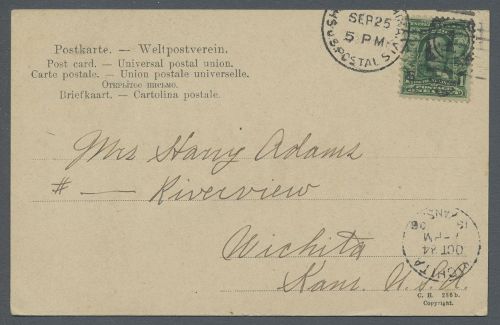 Postkarte. — Weltpostverein.
Post card. — Universal postal union.
Carte postale. — Union postale universelle.
Открытое письмо.
Briefkaart. — Cartolina postale.
SEP 25
5 PM
U.S. POSTAL
Mrs Harry Adams
# — Riverview
Wichita
Kans. U.S.A.
WICHITA
OCT 24
PM
KANS
C. H. 286 b.
Copyright.